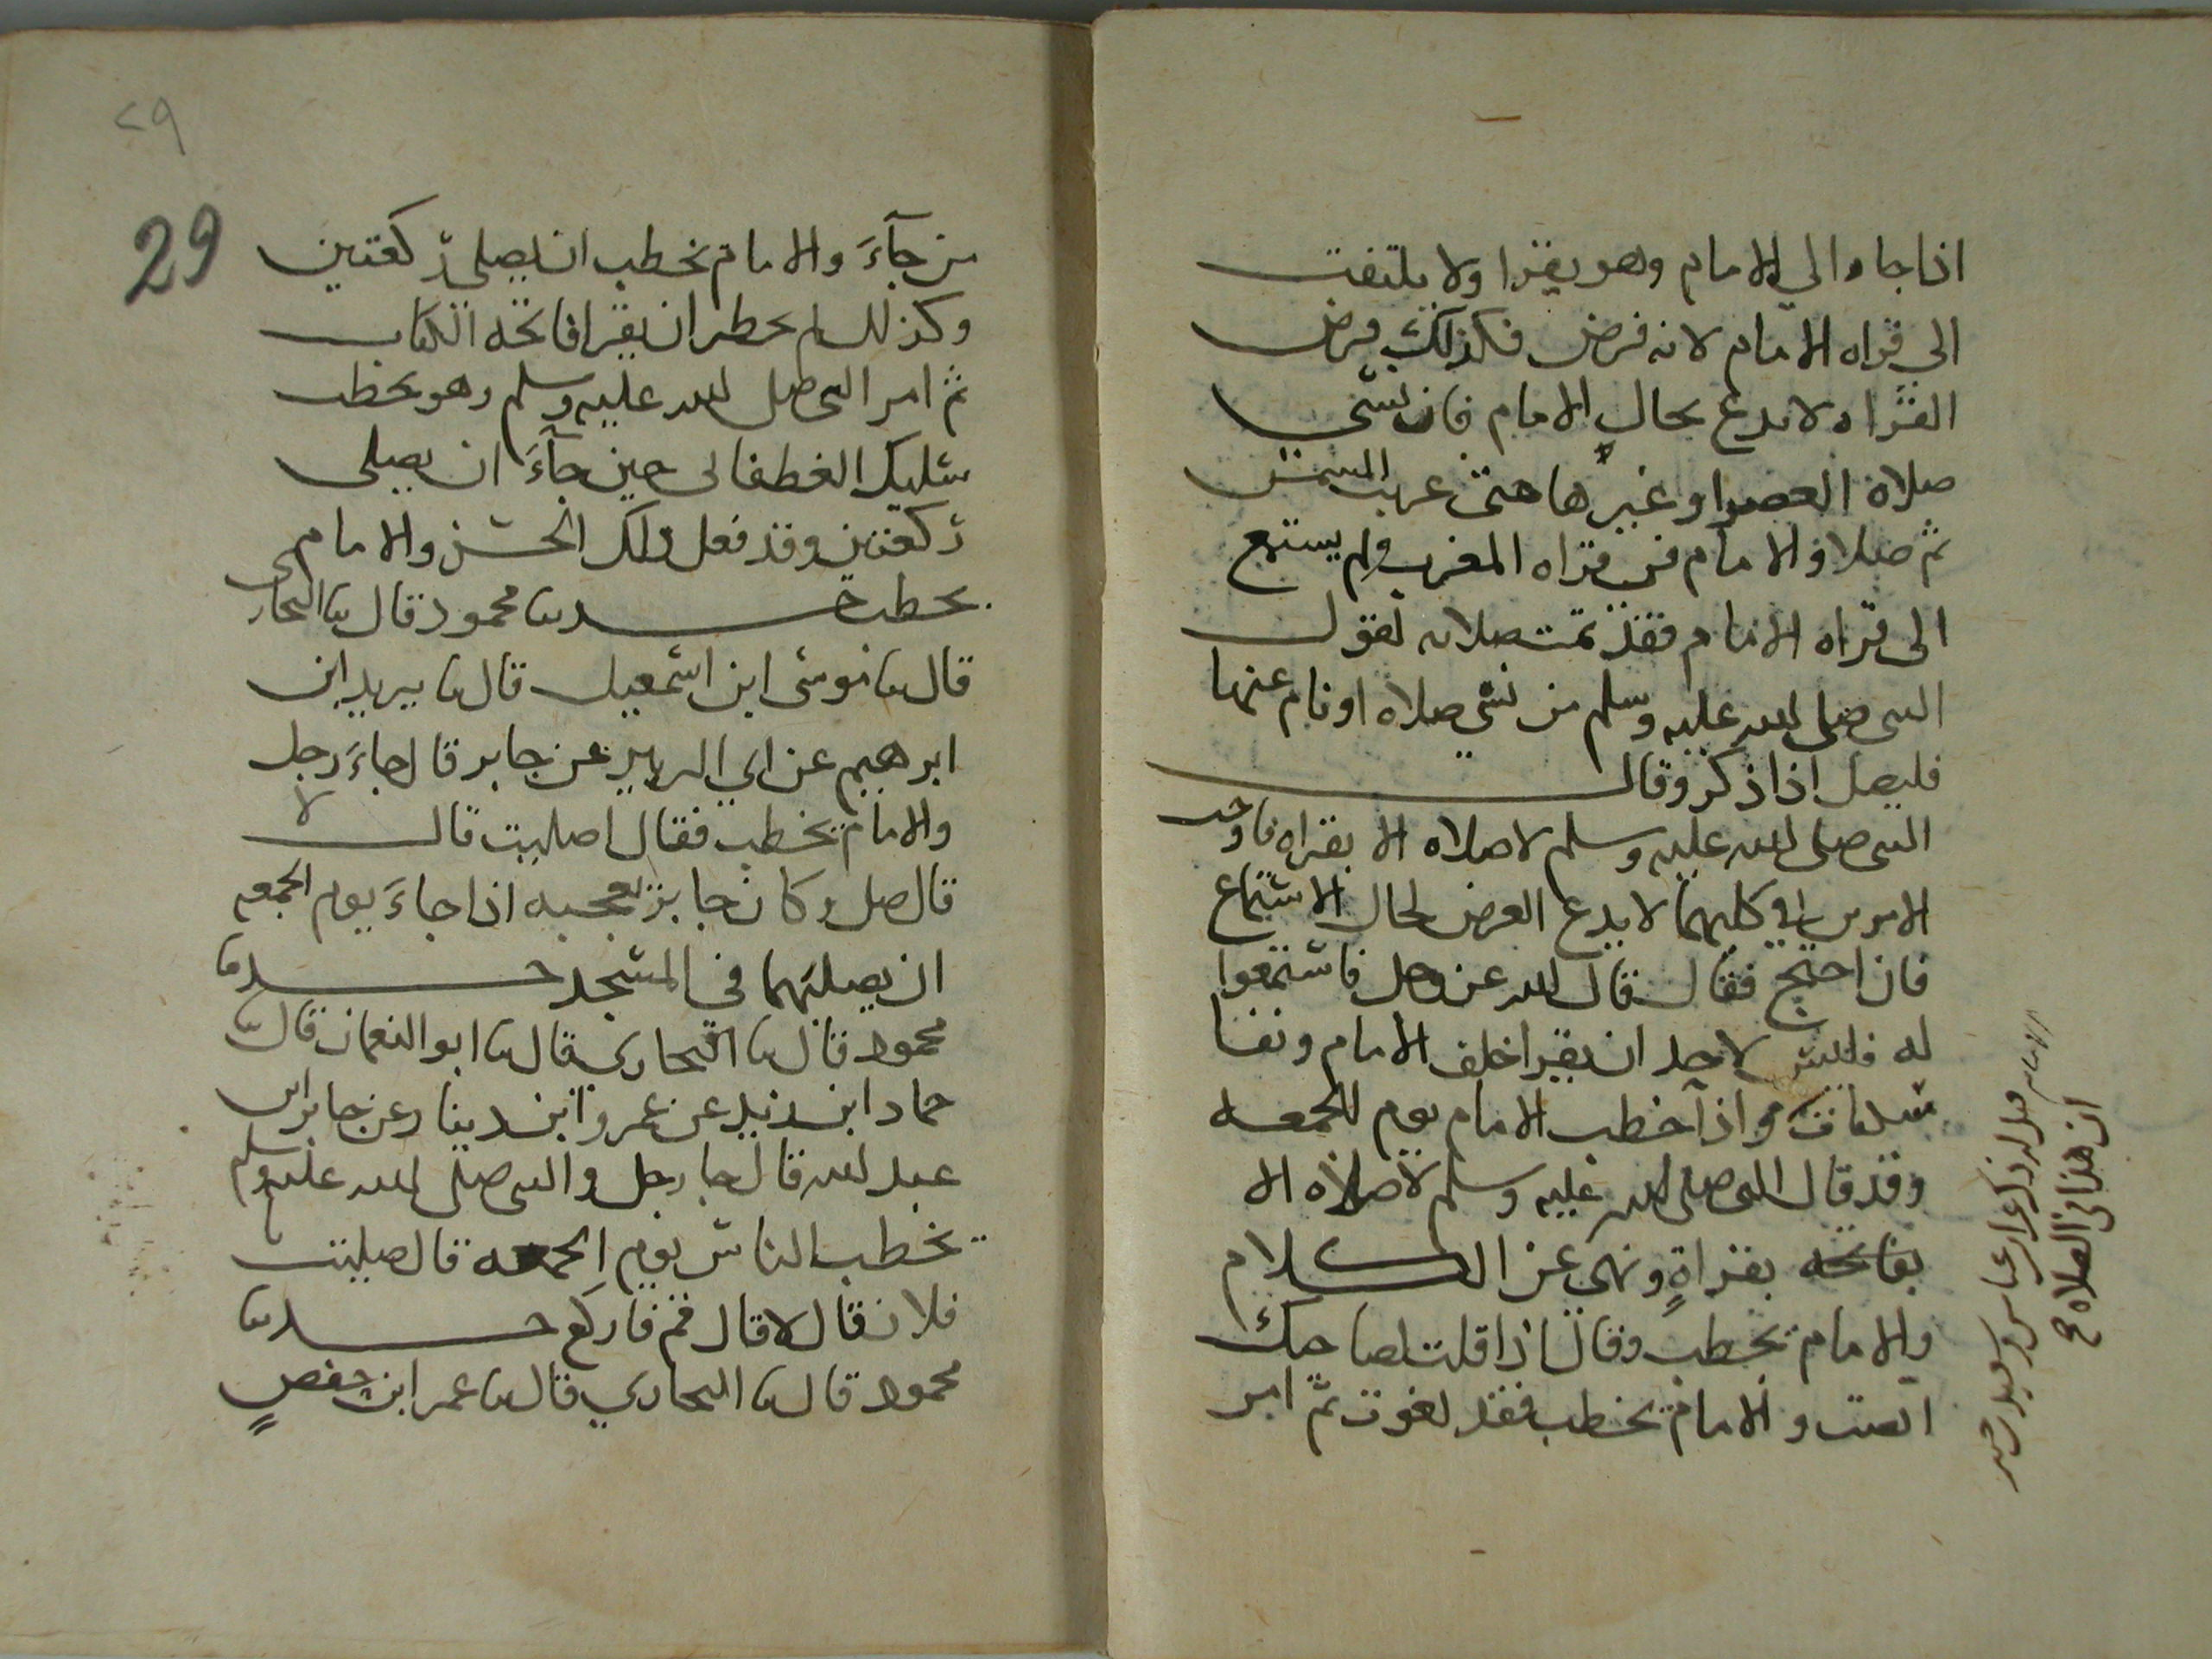 اذا جاء الي الامام وهو يقرا ولا يلتفت
الى قراه الامام لانه فرض فكذلك فرض
القراه لا يدع بحال الامام فان نسي
صلاة العصر او غيرها حتى غربت الشمس
ثم صلا والامام في قراه المغرب ولم يستمع
الى قراه الامام فقد تمت صلاته لقول
النبي صلى الله عليه وسلم من نسي صلاه او نام عنها
فليصل اذا ذكر وقال
النبي صلى الله عليه وسلم لا صلاه الا بقراه فاوجب
الامرين في كليهما لا يدع الفرض لحال الاستماع
فان احتج فقال قال الله عز وجل فاستمعوا
له فليس لاحد ان يقرا خلف الامام ونفا
سكتات واذا خطب الامام يوم الجمعه
وقد قال النبي صلى الله عليه وسلم لا صلاه الا
بفاتحه بقراةٍ ونهى عن الكلام
والامام يخطب وقال اذا قلت لصاحبك
انصت والامام يخطب فقد لغوت ثم امر
ان هذا في الصلاه
29
٢٩
من جآءَ والامام يخطب ان يصلي ركعتين
وكذلك لم يخطر ان يقرا فاتحه الكتاب
ثم امر النبي صلى الله عليه وسلم وهو يخطب
سليك الغطفاني حين جآءَ ان يصلى
ركعتين وقد فعل ذلك الحسن والامام
يخطب حدثنا محمود قال نا البخاري
قال نا موسى ابن اسمعيل قال نا يزيد ابن
ابرهيم عن ابي الزبير عن جابر قال جاءَ رجل
والامام يخطب فقال اصليت قال لا
قال صل وكان جابر يعجبه اذا جاءَ يوم الجمعه
ان يصليهما في المسجد حدثنا
محمود قال نا البخاري قال نا ابو النعمان قال نا
حماد ابن زيد عن عمرو ابن دينار عن جابر ابن
عبد الله قال جا رجل والنبي صلى الله عليه وسلم
يخطب الناس يوم الجمعه قال صليت
فلان قال لا قال قم فاركع حدثنا
محمود قال نا البخاري قال نا عمر ابن حفصٍ